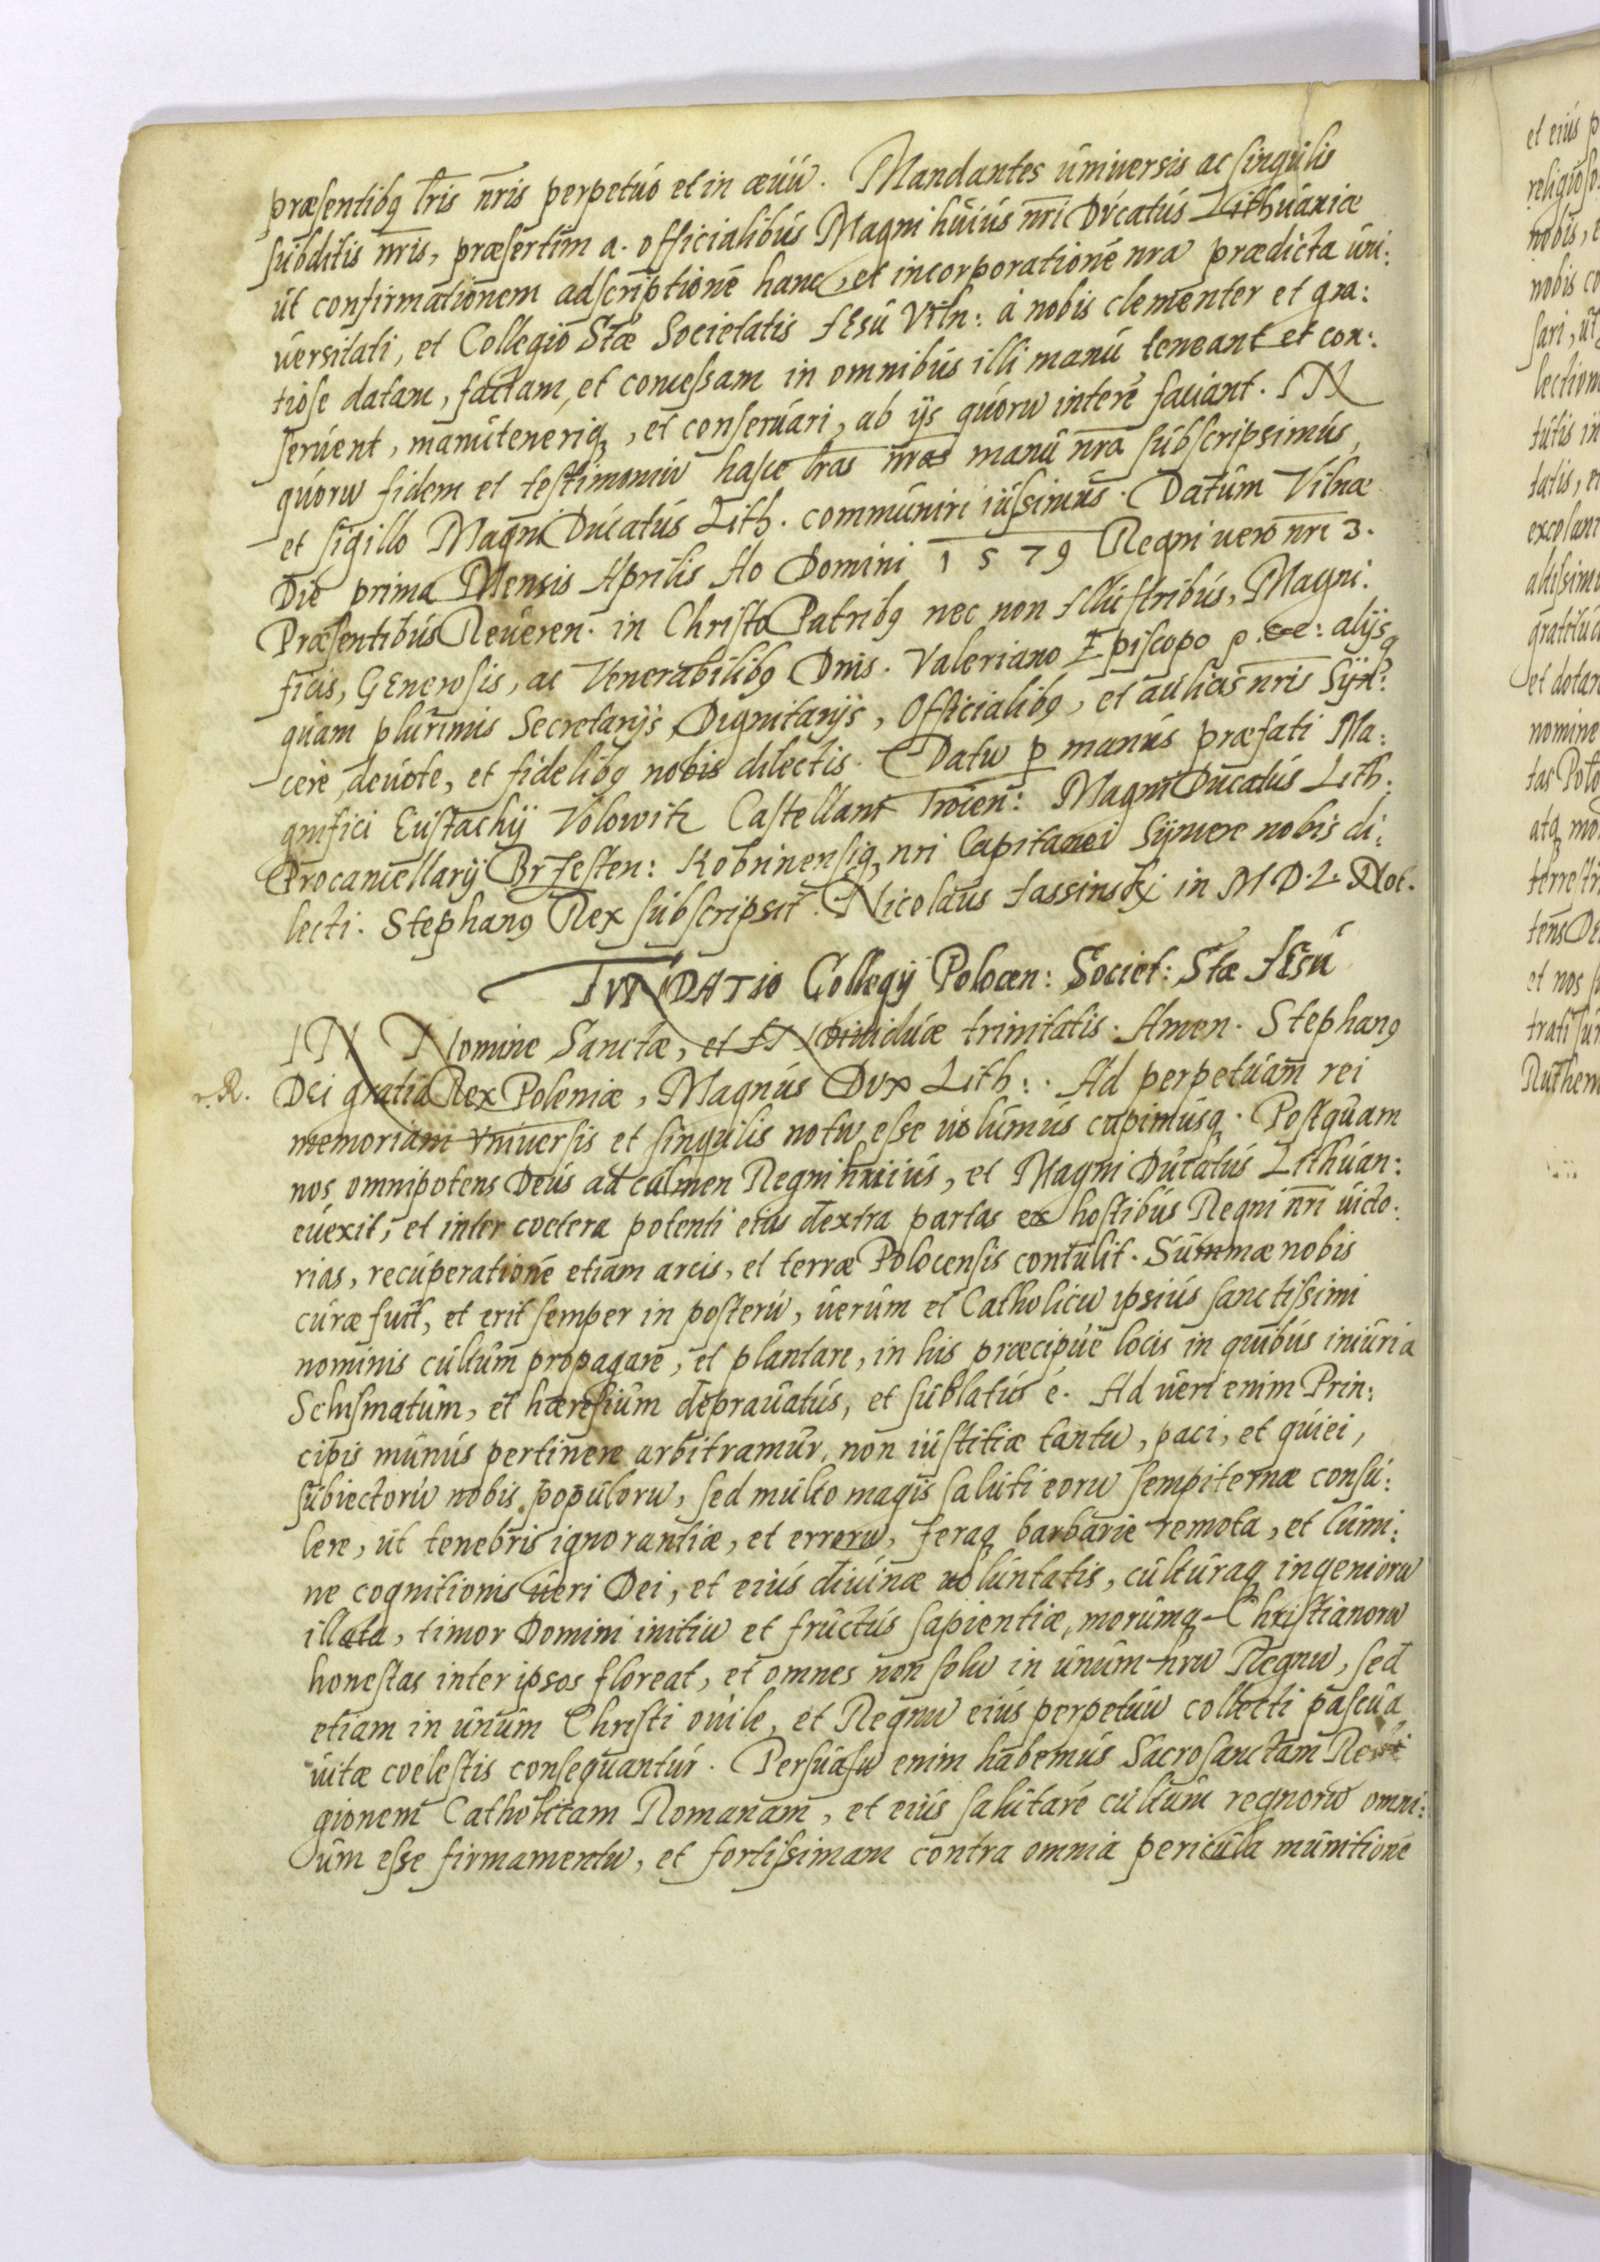 præsentibꝗ lr̃is nr̃is perpetuó et in æuũ. Mandantes uniuersis ac singulis
subditis nr̃is, præsertim a. officialibus Magni huius nr̃i Ducatus Lithuaniæ
ut confirmationem adscriptionẽ hanc, et incorporationẽ nrã prædicta uni:
uersitati, et Collegio Stæ Societatis IEsu Viln: à nobis clementer et gra:
tiose datam, factam, et concessam in omnibus illi manu teneant et con:
seruent, manuteneriq, et conseruari, ab ijs quorũ interẽ faciant. IN
quorũ fidem et testimoniũ hasce lr̃as nr̃as manu nr̃a subscripsimus,
et sigillo Magni Ducatus Lith. communiri iussimus. Datum Vilnæ
Die prima Mensis Aprilis Ao Domini 1579 Regni uero nr̃i 3.
Præsentibus Reueren. in Christo Patribꝗ nec non Illustribus, Magni:
ficis, GEnerosis, ac Venerabilibꝗ Dnis. Valeriano Episcopo p. alijsq
quam plurimis Secretarijs Dignitarijs, Officialibꝗ, et aulicis nr̃is Syn:
cere, deuote, et fidelibꝗ nobis dilectis. Datũ p manus præfati Ma:
gnifici Eustachij Volowitz Castellani Trocen: Magni Ducatus Lith:
Procancellarij Brzesten: Kobrinensiq, nri Capitanei Syncere nobis di:
lecti. Stephanꝗ Rex subscripsit. Nicolaus Iassinski in M.D.L. Not.
FVNDATIO Collegij Polocen: Societ: Stæ IEsu
IN Nomine Sanctæ, et INdiuiduæ trinitatis. Amen. Stephanꝗ
r. R. Dei gratia Rex Poloniæ, Magnus Dux Lith:. Ad perpetuam rei
memoriam vniuersis et singulis notũ esse uolumus cupimusq. Postquam
nos omnipotens Deus ad culmen Regni huius, et Magni Ducatus Lithuan:
euexit, et inter coetera potenti eius dextra partas ex hostibus Regni nr̃i uicto:
rias, recuperationẽ etiam arcis, et terræ Polocensis contulit. Summæ nobis
curæ fuit, et erit semper in posterũ, uerum et Catholicũ ipsius sanctissimi
nominis cultum propagare, et plantare, in his præcipue locis in quibus iniuria
Schismatum, et hæresium deprauatus, et sublatus ẽ. Ad ueri enim Prin:
cipis munus pertinere arbitramur, non iustitiæ tantũ, paci, et quiei,
subiectorũ nobis populorũ, sed multo magis saluti eorũ sempiternæ consu:
lere, ut tenebris ignorantiæ, et errorũ, feraq barbarie remota, et lumi:
ne cognitionis ueri Dei, et eius diuinæ uoluntatis, culturaq ingeniorũ
illata, timor Domini initiũ et fructus sapientiæ, morumq Christianorũ
honestas inter ipsos floreat, et omnes non solũ in unum nrũ Regnũ, sed
etiam in unum Christi ouile, et Regnũ eius perpetuũ collecti pascua
uitæ coelestis consequantur. Persuasũ enim habemus Sacrosanctam Reli
gionem Catholicam Romanam, et eius salutarẽ cultum regnorũ omni:
um esse firmamentũ, et fortissimam contra omnia pericula munitionẽ